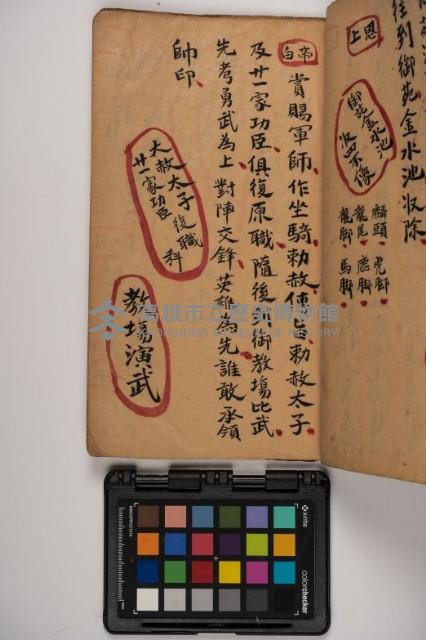 往到御苑金水池收除
麟頭 虎腳
龍尾 鹿腳
龍腳 馬腳
御苑金水池
收四不像
恩上
帝白
賞賜軍師作坐騎勅赦傳旨勅赦太子
及廿一家功臣俱復原職隨後御教場比武
先考勇武為上對陣交鋒英雄為先誰敢承領
帥印
大赦太子復職科
廿一家功臣
教場演武
高雄市立歷史博物館
KAOHSIUNG MUSEUM OF HISTORY
x-rite
colorchecker